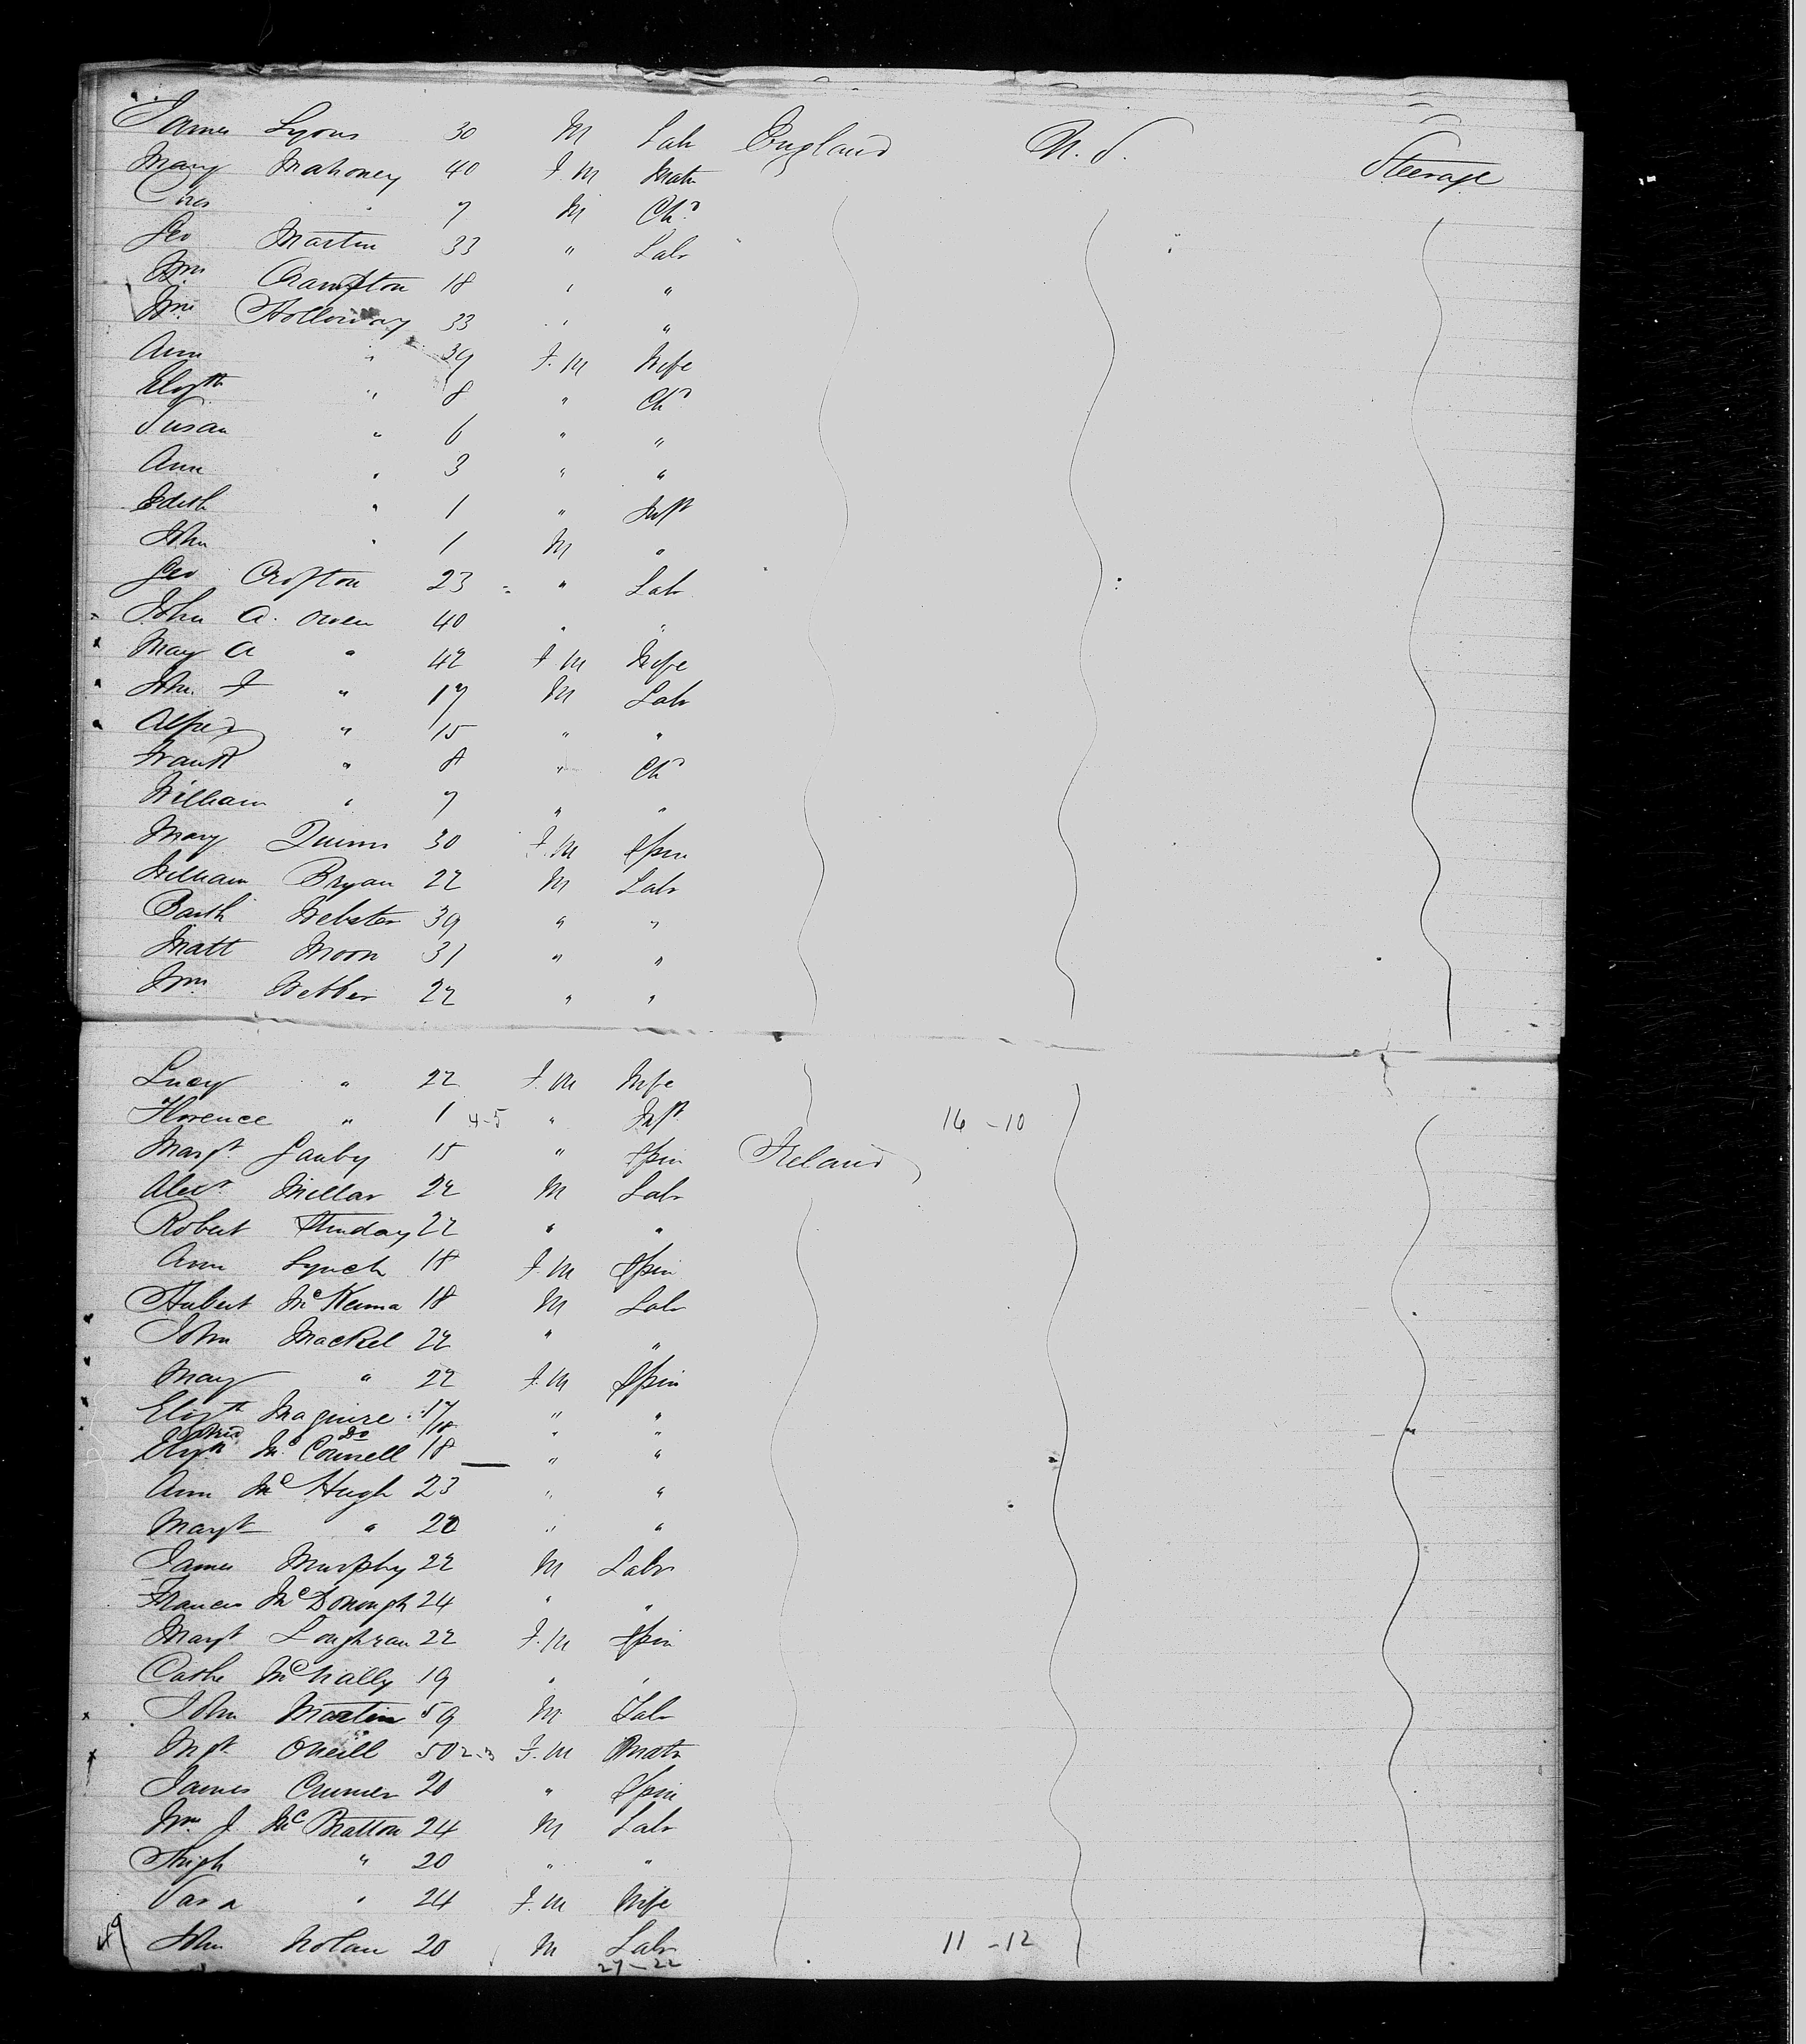 James Lyons 30 M Lab England U.S. Steerage
Mary Mahoney 40 F.M Matr
" 7 M Chd
Geo Martin 33 " Labr
Wm Crampton 18 " "
Wm Holloway 33 " "
Ann " 39 F.M Wife
Elizth " 8 " Chd
Susan " 6 " "
Ann " 3 " "
Edith " 1 " Inft
John " 1 M "
Geo Crofton 23 " Labr
John A. Owen 40 " "
Mary A " 42 F M Wife
Jhn. F " 17 M Labr
Alfred " 15 " "
Frank " 8 " Chd
William " 7 " "
Mary Quinn 30 F.M Spin
William Bryan 22 M Labr
Barth Webster 39 " "
Matt Moon 31 " "
Wm Webber 22 " "
Lucy " 22 F.M Wife
Florence " 1 4-5 " Inft 16-10
Margt 15 " Spin Ireland
Alexr Millar 22 M Labr
Robert 22 " "
Ann Lynch 18 F.M Spin
Hubert McKenna 18 M Labr
John Mackel 22 " "
Mary " 22 F.M Spin
Elizth Maguire 17 " "
Do 18 " "
Elizth McConnell 18 " "
Ann McHugh 23 " "
Margt " 20 " "
James Murphy 22 M Labr
Francis McDonough 24 " "
Margt Loughran 22 F.M Spin
Cathe McNally 19 " "
John Martin 59 M Labr
Mgt ONeill 50 2-3 F.M Matr
James 20 " Spin
Wm J. McBratton 24 M Labr
Hugh " 20 " "
Sara " 24 F.M Wife
49 John Nolan 20 M Labr 11-12
27-22